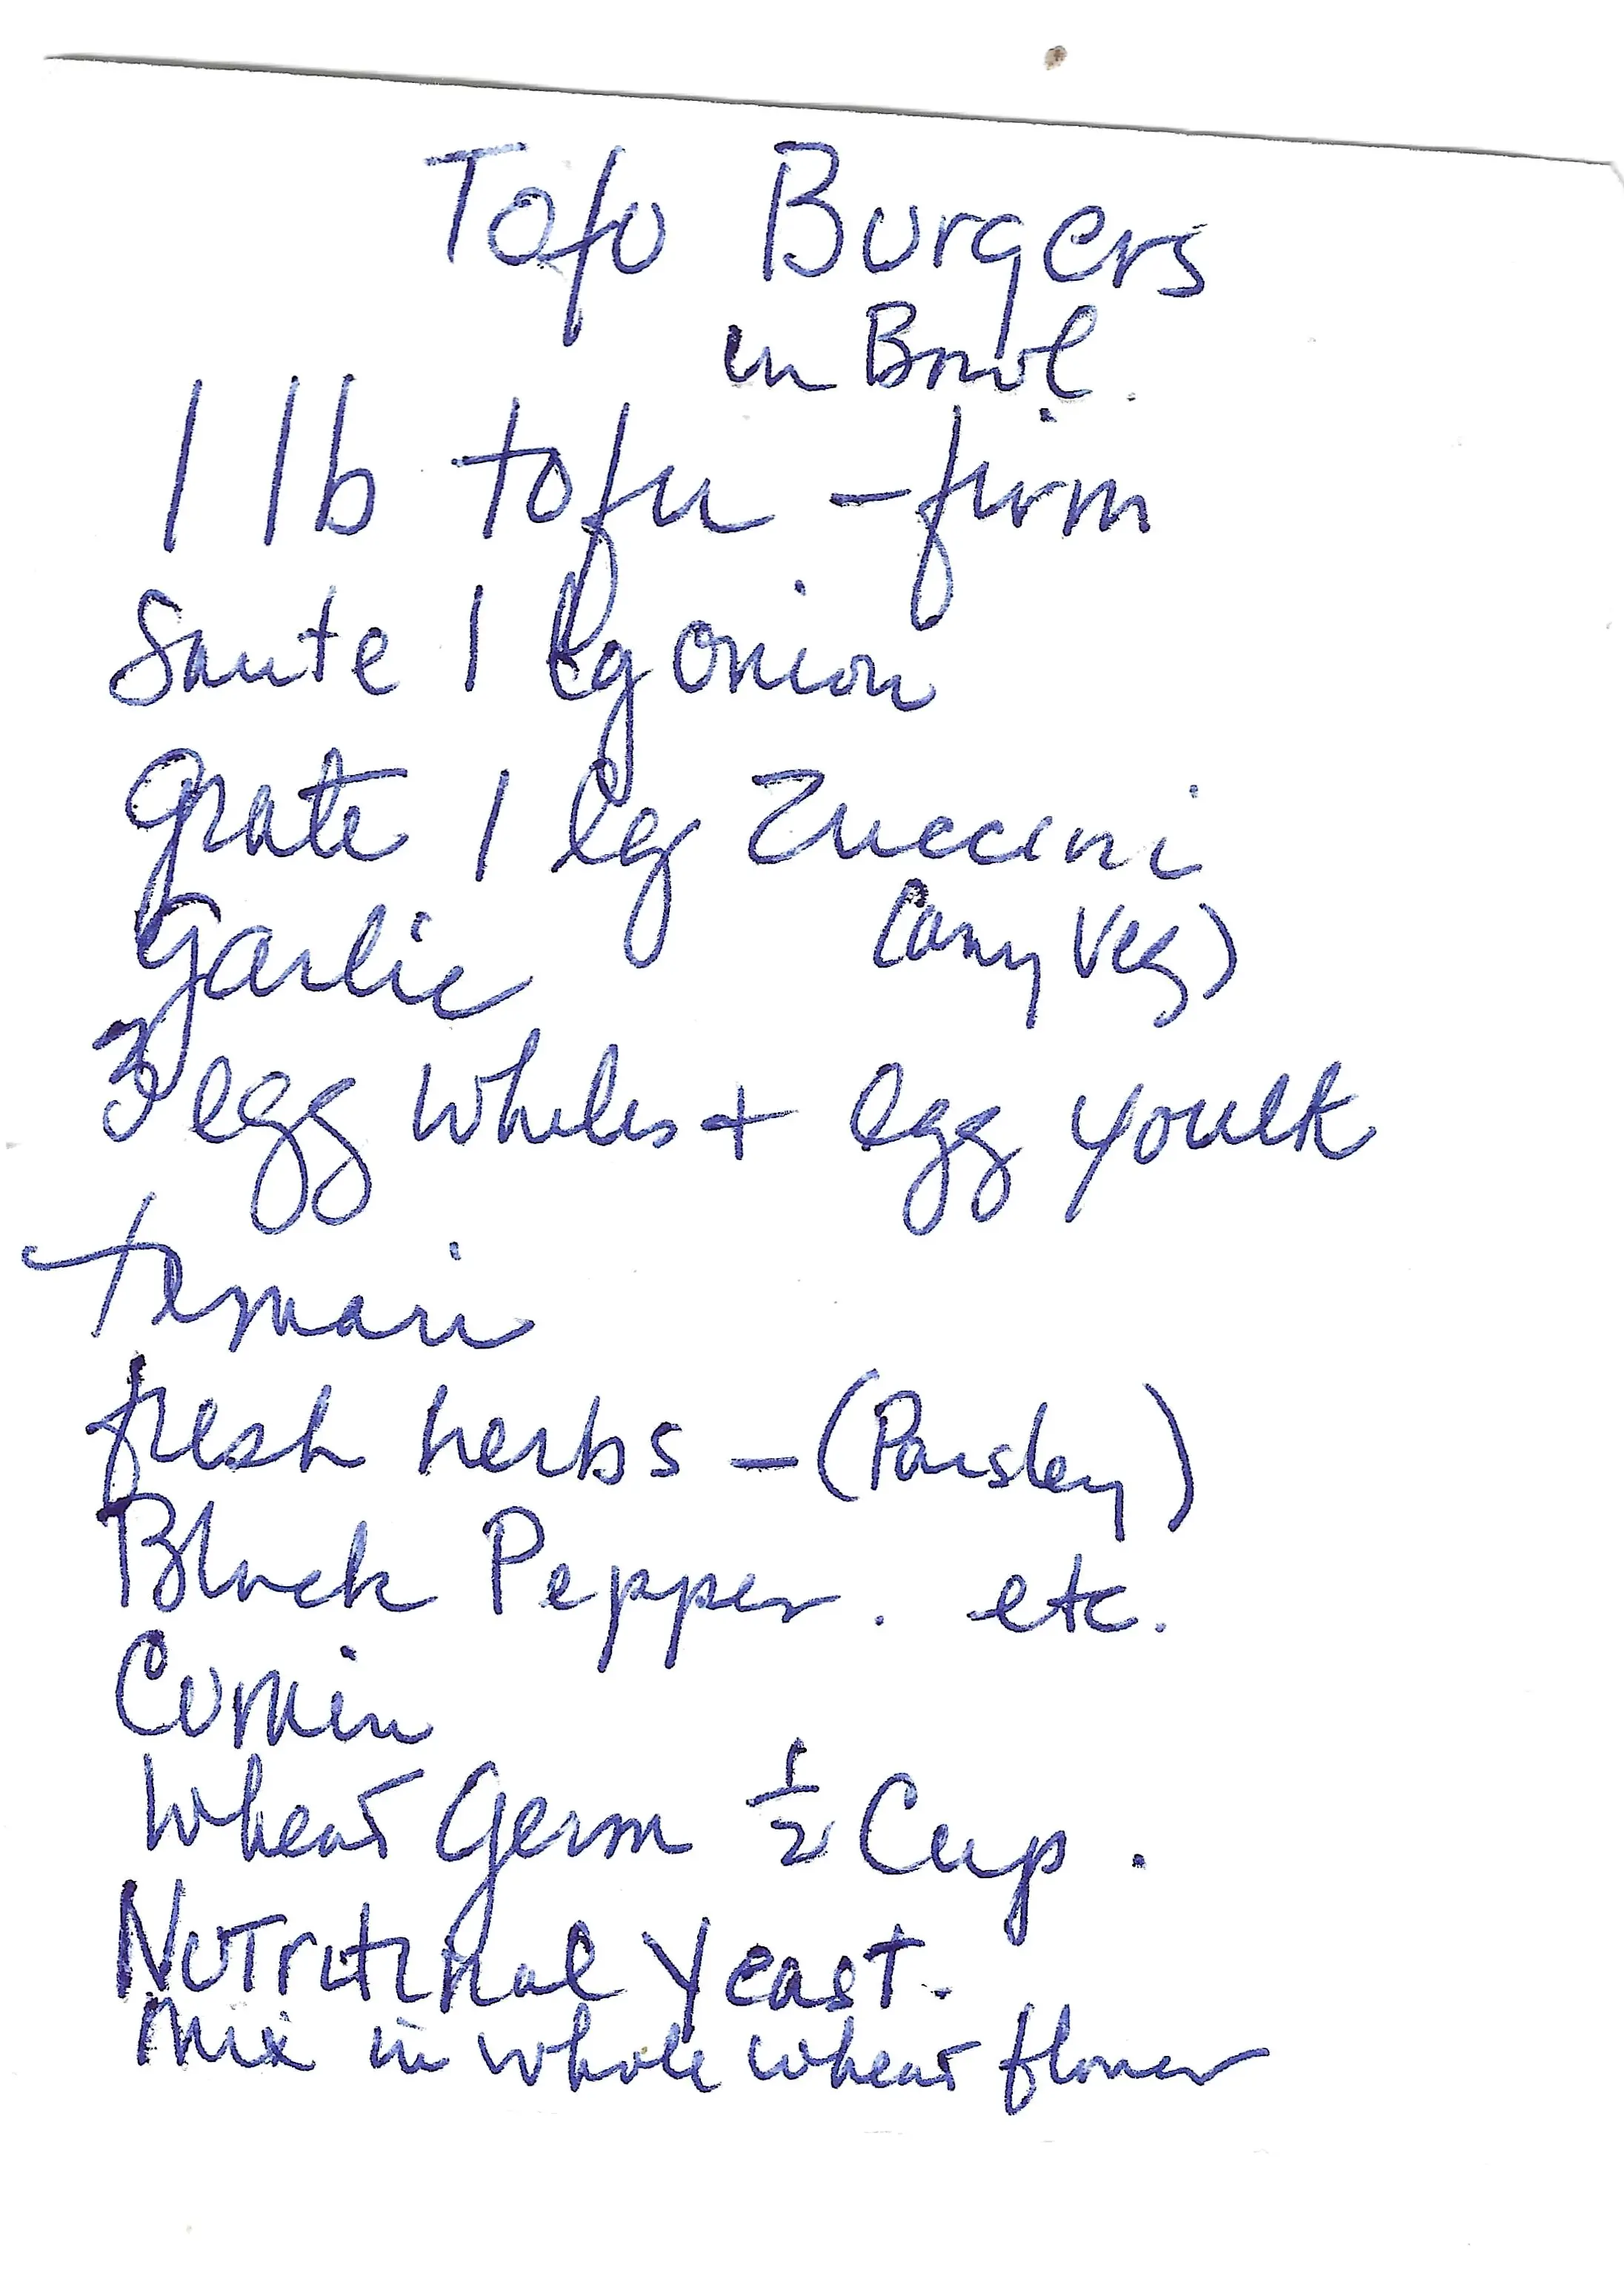 Tofu Burgers
in Bowl.
1 lb tofu - firm
Saute 1 lg onion
grate 1 lg Zuccini
(any Veg)
Garlic
3 egg whites + egg youlk
temari
fresh herbs - (Parsley)
Black Pepper. etc.
Cumin
Wheat Germ ½ Cup.
Nutritinal Yeast.
Mix in whole wheat flower